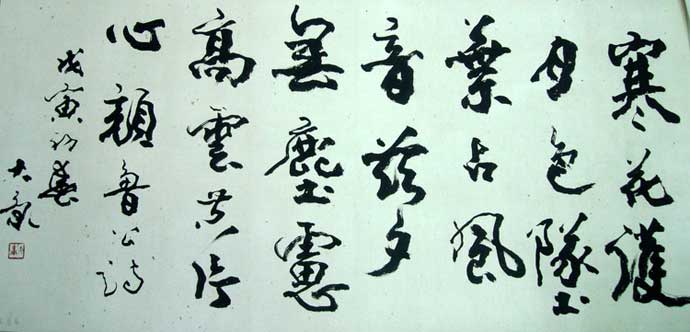 寒花護
月色墜
葉占風
音茲夕
無塵慮
高雲共片
心顏魯公詩
戊寅初春
大